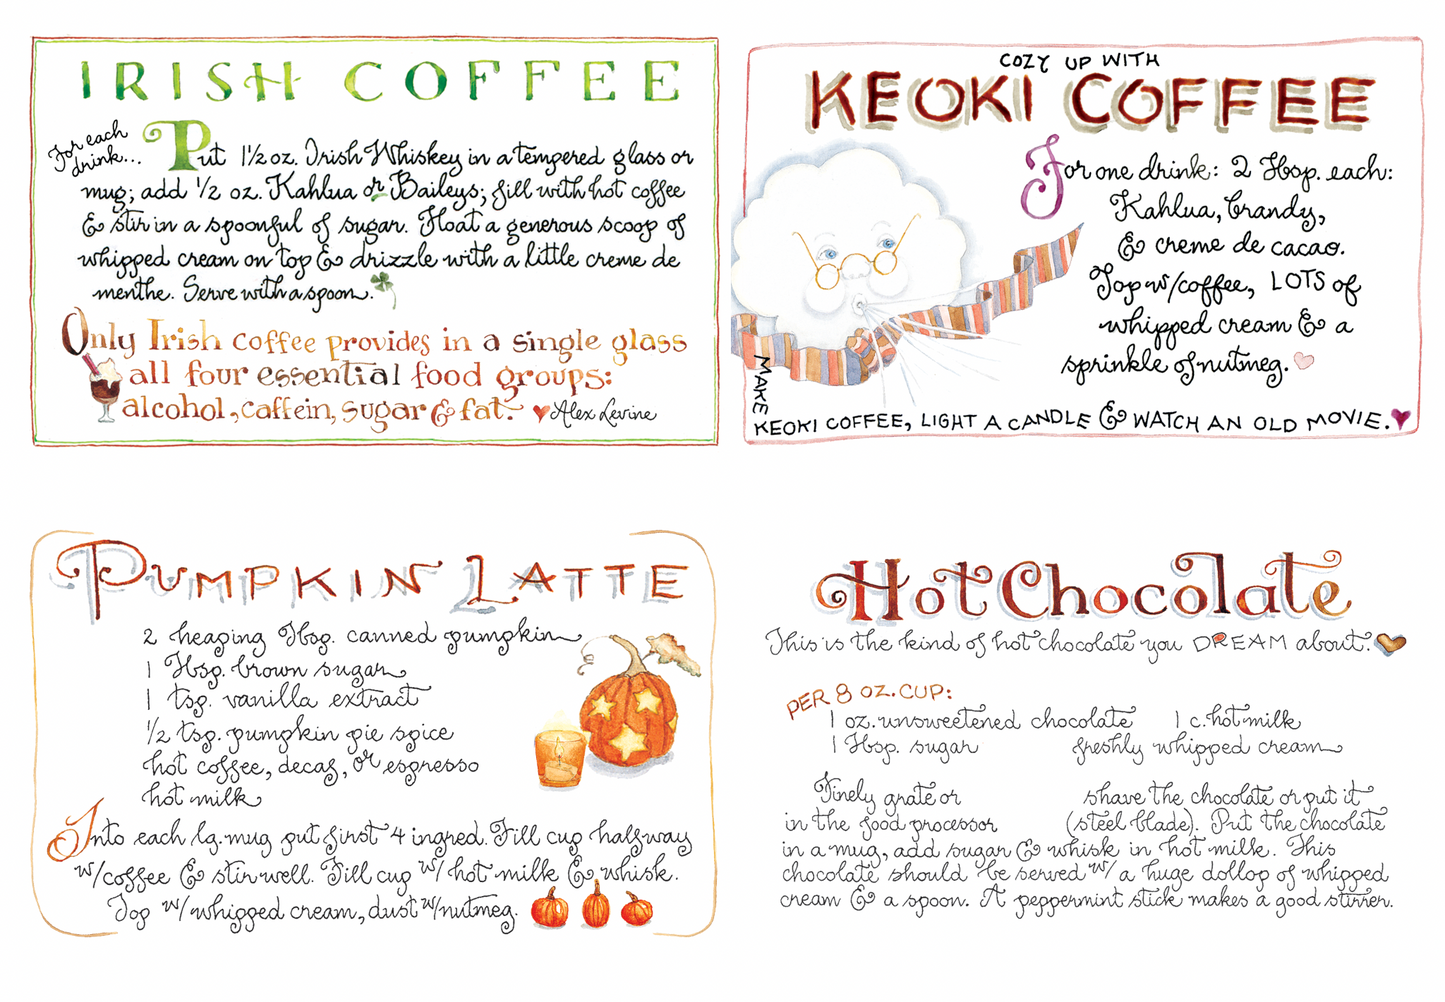 IRISH COFFEE
For each drink...
Put 1½ oz. Irish Whiskey in a tempered glass or
mug; add ½ oz. Kahlua or Baileys; fill with hot coffee
& stir in a spoonful of sugar. Float a generous scoop of
whipped cream on top & drizzle with a little creme de
menthe. Serve with a spoon.
Only Irish coffee provides in a single glass
all four essential food groups:
alcohol, caffein, sugar & fat. Alex Levine
COZY UP WITH
KEOKI COFFEE
For one drink: 2 Tbsp. each:
Kahlua, brandy,
& creme de cacao.
Top w/coffee, LOTS of
whipped cream & a
sprinkle of nutmeg.
MAKE
KEOKI COFFEE, LIGHT A CANDLE & WATCH AN OLD MOVIE.
PUMPKIN LATTE
2 heaping Tbsp. canned pumpkin
1 Tbsp. brown sugar
1 tsp. vanilla extract
½ tsp. pumpkin pie spice
hot coffee, decaf, or espresso
hot milk
Into each lg. mug put first 4 ingred. Fill cup halfway
w/coffee & stir well. Fill cup w/hot milk & whisk.
Top w/whipped cream, dust w/nutmeg.
Hot Chocolate
This is the kind of hot chocolate you DREAM about.
PER 8 OZ. CUP:
1 oz. unsweetened chocolate 1 c. hot milk
1 Tbsp. sugar freshly whipped cream
Finely grate or shave the chocolate or put it
in the food processor (steel blade). Put the chocolate
in a mug, add sugar & whisk in hot milk. This
chocolate should be served w/ a huge dollop of whipped
cream & a spoon. A peppermint stick makes a good stirrer.